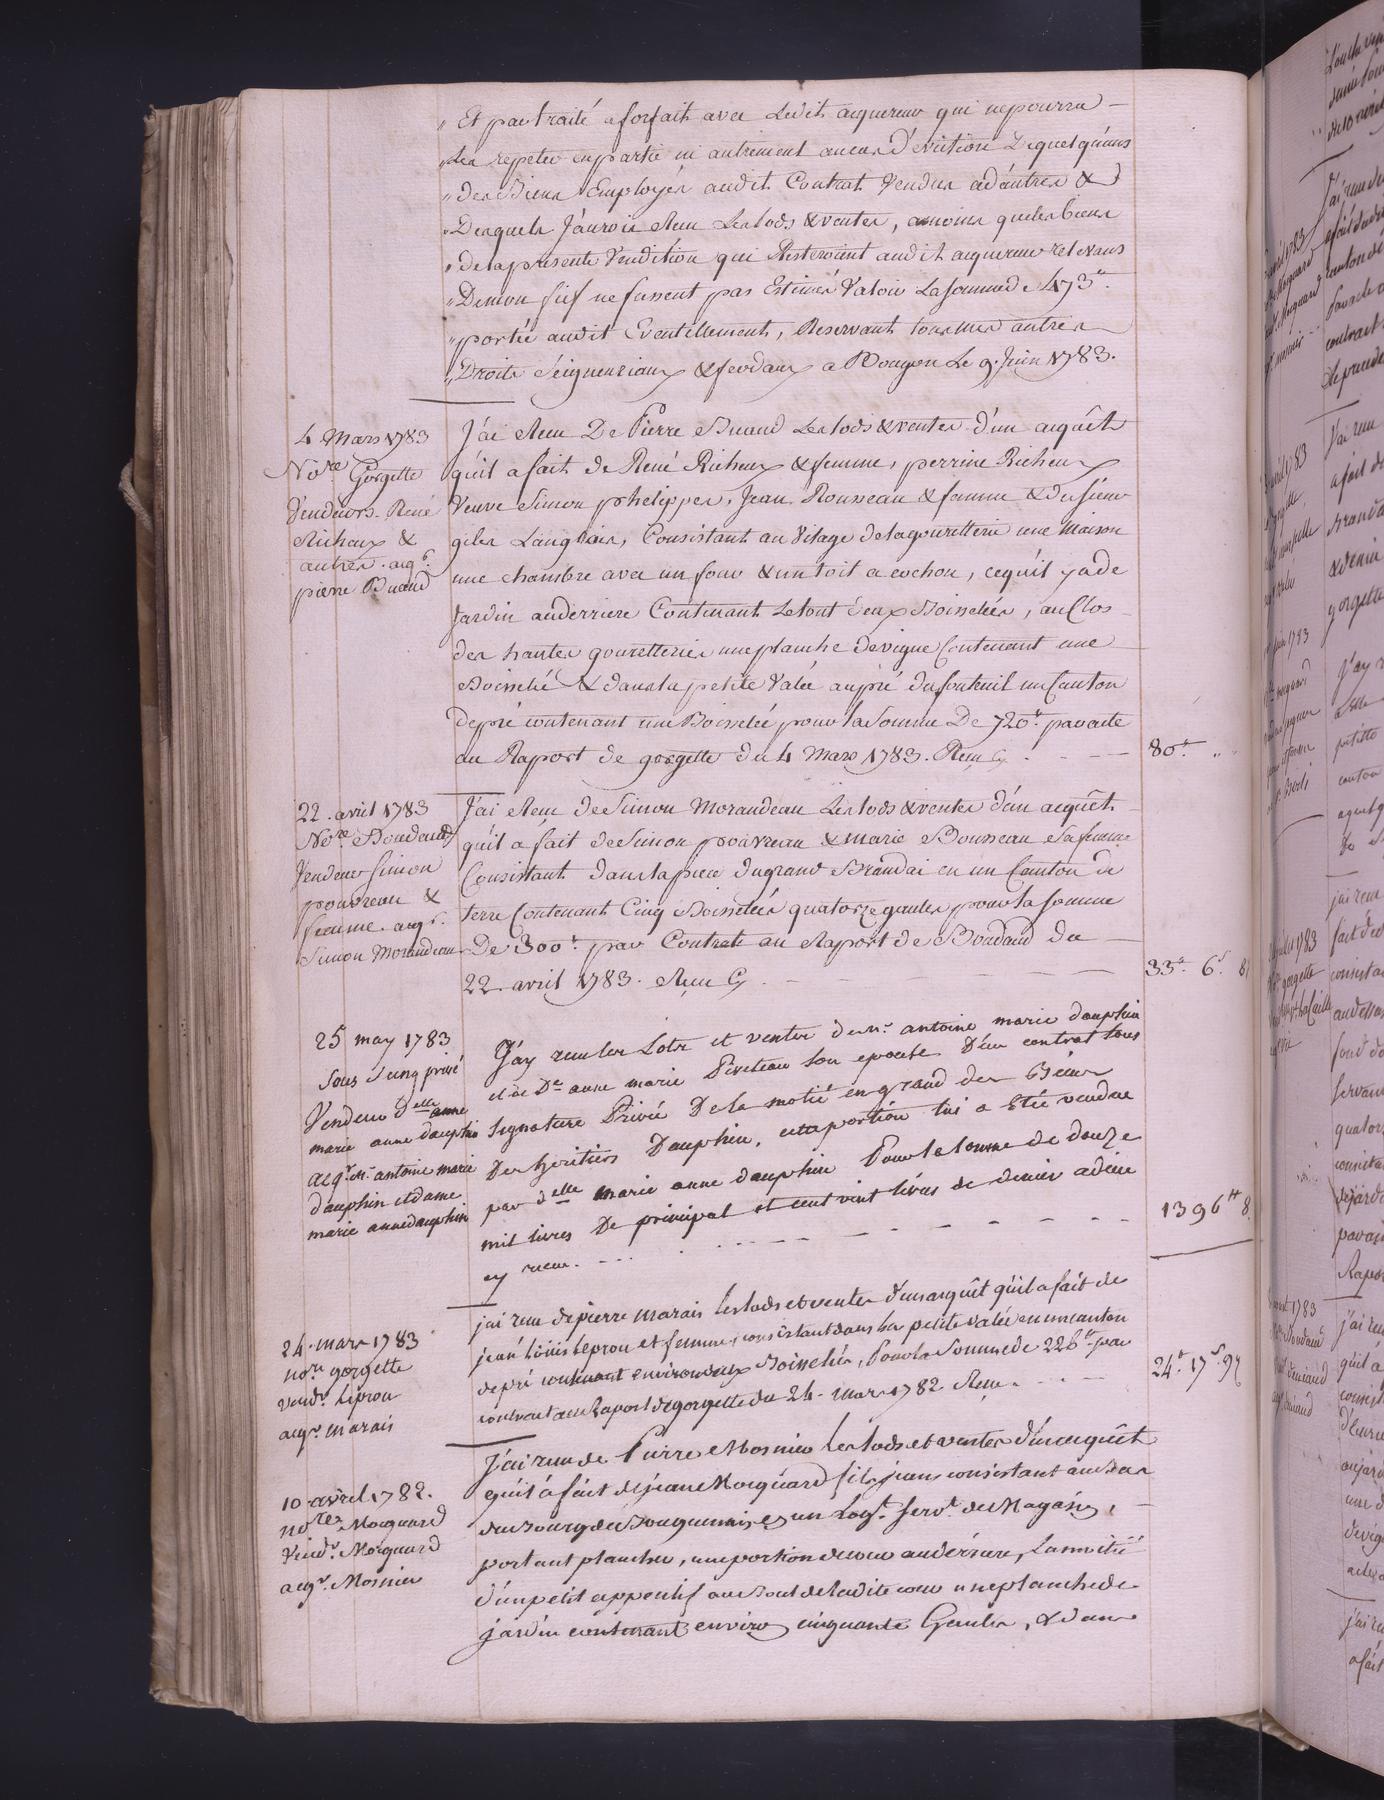 „ Et par traité a forfait avec Ledit aquereur qui ne pourra
„ Les repeter en partie ni autrement en cas d'Eviction de quelqu'uns
„ des Biens Employés audit Contrat Vendus a d'autres &
„ Desquels J'aurois Reçu Les lods & ventes, a moins que les biens
„ de la presente Vendition qui Resteroient audit aquereur relevans
„ De mon fief ne fussent pas Estimés Valoir La somme de 473ᵗᵗ.
„ portée audit Eventillement, Reservant tous mes autres
„ Droits Séigneuriaux & feodaux a Bougon Le 9. Juin 1783.
4 Mars 1783
Noʳᵉ Gorgette
Vendeurs René
Richeux &
autres. aqʳ.
pierre Buaud
J'ai Reçu De Pierre Buaud Les lods & ventes d'un aquêt
qu'il a fait de René Richeux & femme, perrine Richeux
Veuve Simon phelippes, Jean Rousseau & femme & du sieur
giles Langlois, Consistant au Vilage de la gouretterie une Maison
une chambre avec un four & un toit a cochon, ce qu'il y a de
Jardin au derriere Contenant Le tout deux Boisselées, au Clos
des hautes gouretteries une planche de vigne Contenant une
Boisselée & dans la petite Valée au pré du fonteuil un Canton
de pré contenant une Boisselée pour la Somme De 720ᵗᵗ. par acte
au Raport de gorgette du 4 Mars 1783. Reçu Cy
80ᵗᵗ. „ „
22. avril 1783
Noʳᵉ Boudaud
Vendeur Simon
pouvreau &
femme. aqʳ.
Simon Morandeau
J'ai Reçu de Simon Morandeau Les lods & ventes d'un aquêt
qu'il a fait de Simon pouvreau & marie Bousseau sa femme
Consistant dans la piece du grand Brandai en un Canton de
terre Contenant Cinq Boisselées quatorze gaules pour la somme
De 300ᵗᵗ. par Contrat au Raport de Boudaud du
22. avril 1783. Reçu Cy
33ᵗᵗ. 6ˢ. 8
25 may 1783
Sous Seing privé
Vendeur dᵉˡˡᵉ anne
marie anne dauphin
acqʳ. Mʳ antoine marie
dauphin et dame
marie anne dauphin
J'ay recu les Lots et ventes de Mʳ. antoine marie dauphin
et de Dᵉ anne marie Piveteau son epouse D'un contrat sous
signature Privée De la motié en grand des Biens
Des heritiers Dauphin, cette portion lui a Eté vendue
par dᵉˡˡᵉ marie anne dauphin Pour la somme de douze
mil livres De principal et cent vint livres de denier adieu
cy recu.
1396ᵗᵗ 8
24. mars 1783
noʳᵉ gorgette
vendʳ. Leprou
aqʳ. marais
jai recu de pierre marais les lods et ventes d'un aquêt qu'il a fait de
jean Louis Leprou et femme, consistant dans la petite valée en un canton
de pré contenant environ deux Boisselées, Pour la Somme de 226ᵗᵗ par
contract au Raport de gorgette du 24. mars 1782 Recu.
24ᵗᵗ. 17ˢ. 9
10 avril 1782.
noʳᵉˢ Mocquard
Vendʳ. Mocquard
aqʳ. Mosnier
J'ai recu de Pierre Mosnier Les lods et ventes d'un aquêt
qu'il a fait de jean Mocquard fils jean consistant au Bas
du Bourg de Bouguenais en un Logᵗ. servᵗ. de Magasin,
portant plancher, une portion de cour au dérriere, La moitié
d'un petit appentif au Bout de ladite cour une planche de
jardin contenant environ cinquante Gaules, & dans